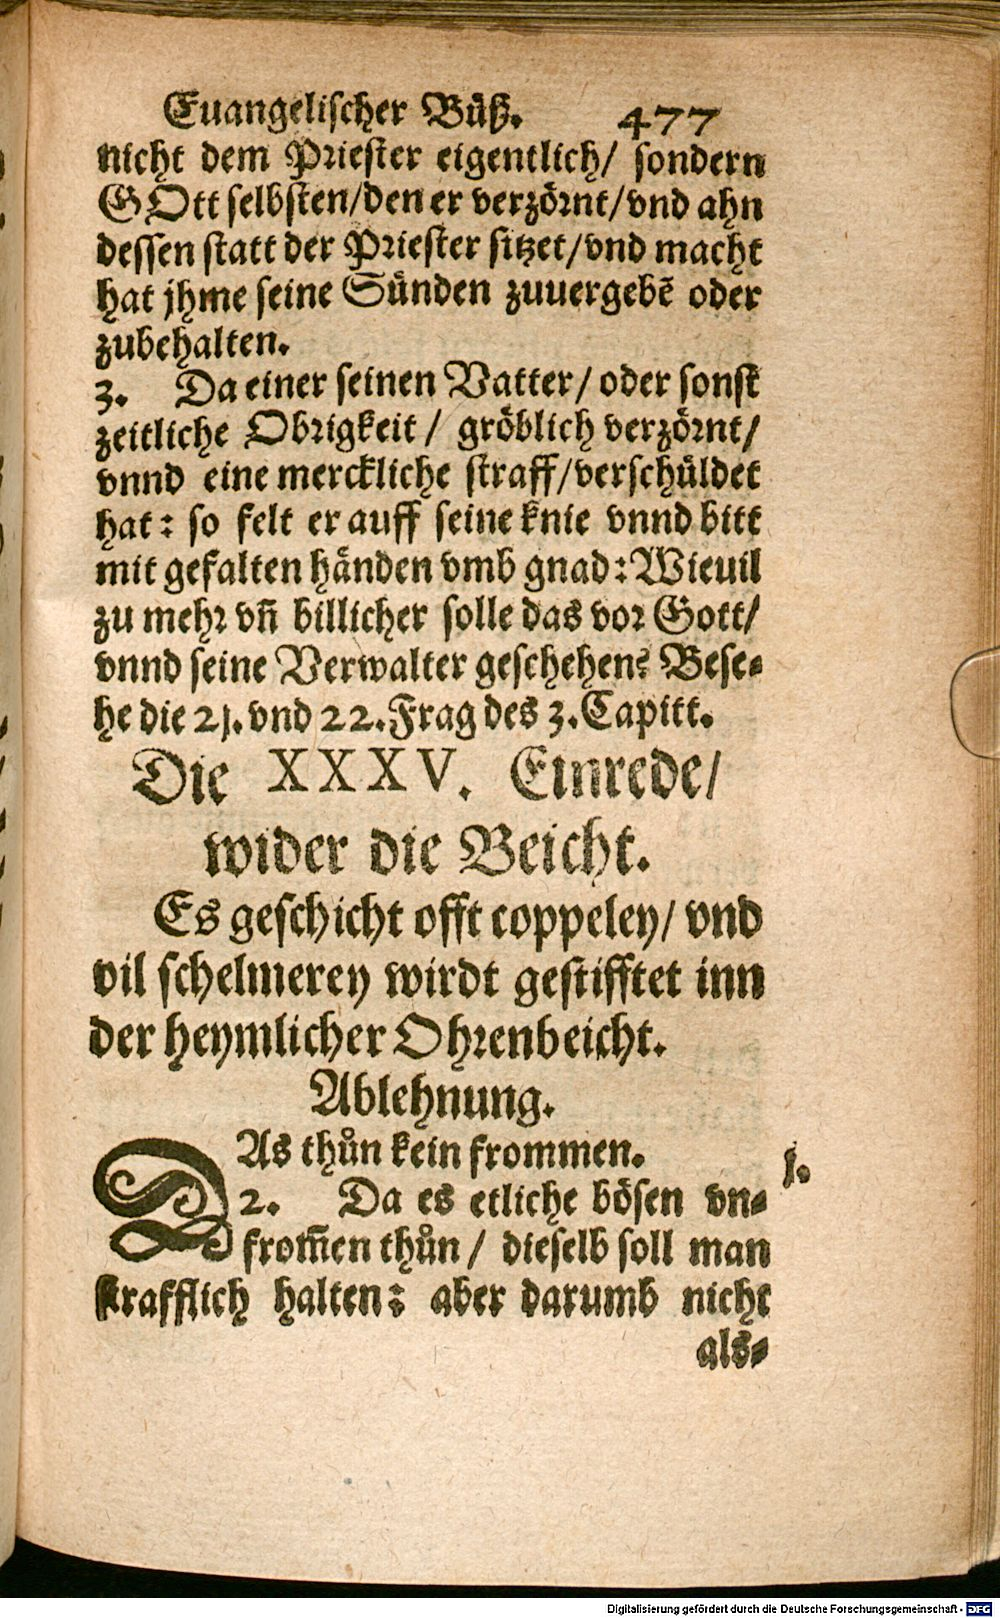 Euangelischer Büß. 477
nicht dem Priester eigentlich/ sondern
GOtt selbsten/den er verzörnt/vnd ahn
dessen statt der Priester sitzet/vnd macht
hat jhme seine Sünden zuuergebē oder
zubehalten.
3. Da einer seinen Vatter/ oder sonst
zeitliche Obrigkeit/ gröblich verzörnt/
vnnd eine merckliche straff/verschüldet
hat: so felt er auff seine knie vnnd bitt
mit gefalten händen vmb gnad: Wieuil
zu mehr vñ billicher solle das vor Gott/
vnnd seine Verwalter geschehen? Bese-
he die 21. vnd 22. Frag des 3. Capitt.
Die XXXV. Einrede/
wider die Beicht.
Es geschicht offt coppeley/ vnd
vil schelmerey wirdt gestifftet inn
der heymlicher Ohrenbeicht.
Ablehnung.
DAs thůn kein frommen. 1.
2. Da es etliche bösen vn-
from̃en thůn/ dieselb soll man
strafflich halten: aber darumb nicht
als-
Digitalisierung gefördert durch die Deutsche Forschungsgemeinschaft - DFG